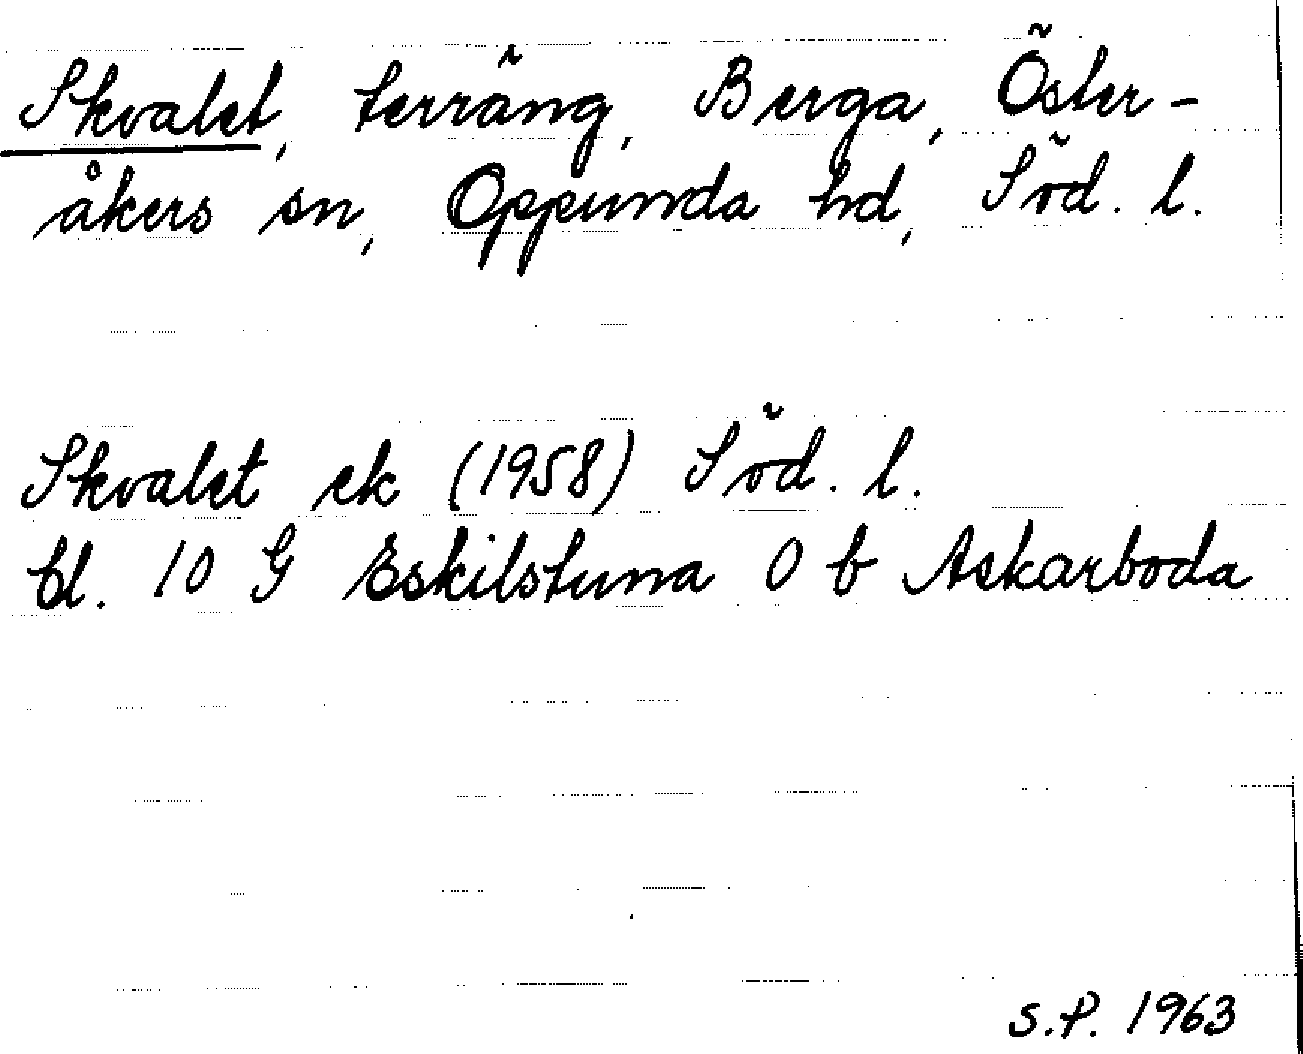 Skvalet, terräng, Berga, Öster-
åkers sn, Oppunda hd, Söd. l.
Skvalet ek (1958) Söd. l.
bl. 10 G Eskilstuna 0 b Askarboda
S.P. 1963